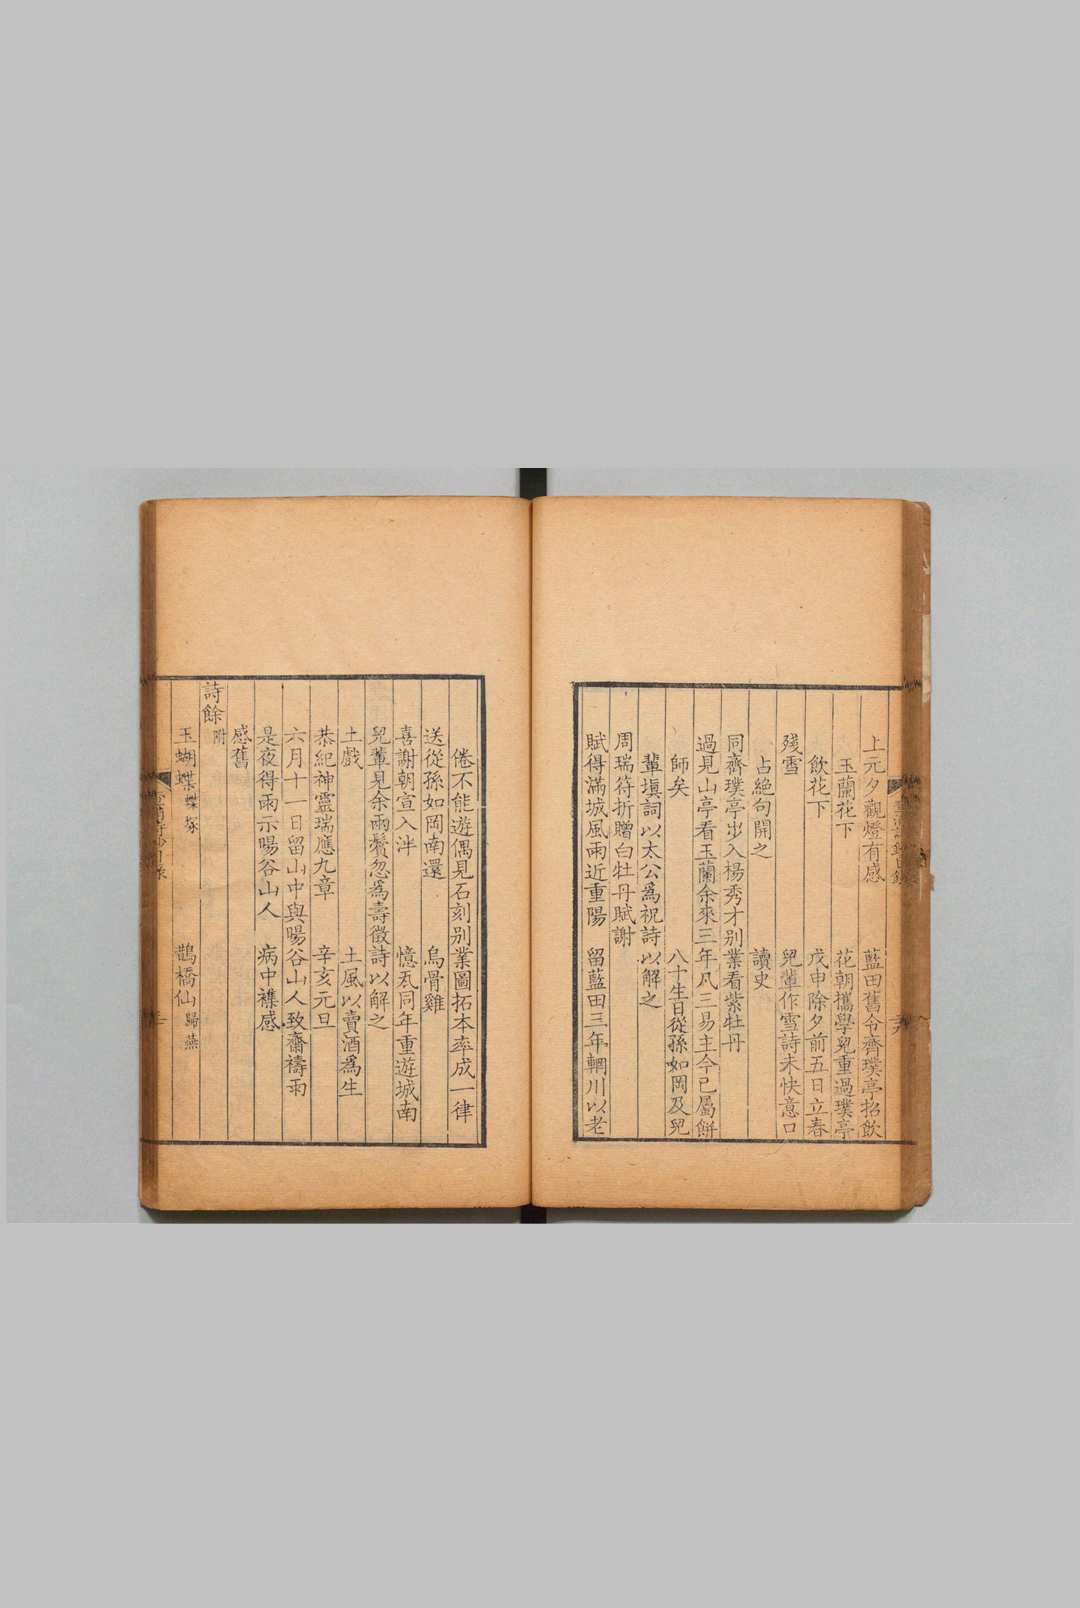 上元夕觀燈有感　藍田舊令齊璞亭招飲
玉蘭花下　花朝攜學兒重過璞亭
飲花下　戊申除夕前五日立春
殘雪　兒輩作雪詩未快意口
占絕句開之　讀史
同齊璞亭出入楊秀才别業看紫牡丹
過見山亭看玉蘭余來三年凡三易主今已屬餅
師矣　八十生日從孫如岡及兒
輩塡詞以太公爲祝詩以解之
周瑞符折贈白牡丹賦謝
賦得滿城風雨近重陽　留藍田三年輞川以老
倦不能遊偶見石刻别業圖拓本率成一律
送從孫如岡南還　烏骨雞
喜謝朝宣入泮　憶同年重遊城南
兒輩見余兩鬢忽爲壽徵詩以解之
土戲　土風以賣酒爲生
恭紀神靈瑞應九章　辛亥元旦
六月十一日留山中與暘谷山人致齋禱雨
是夜得雨示暘谷山人　病中襍感
感舊
詩餘附
玉蝴蝶蝶塚　鵲橋仙歸燕